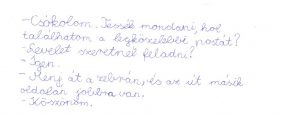 -Csókolom. Tessék mondani, hol
találhatom a legközelebbi postát?
-Levelet szeretnél feladni?
-Igen.
-Menj át a zebrán, és az út másik
oldalán jobbra van.
-Köszönöm.